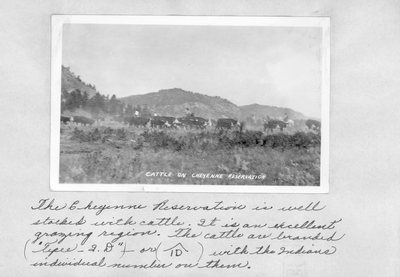 CATTLE ON CHEYENNE RESERVATION
The Cheyenne Reservation is well
stocked with cattle. It is an excellent
grazing region. The cattle are branded
I.D") or ( ID ) with the Indians
individual number on them.